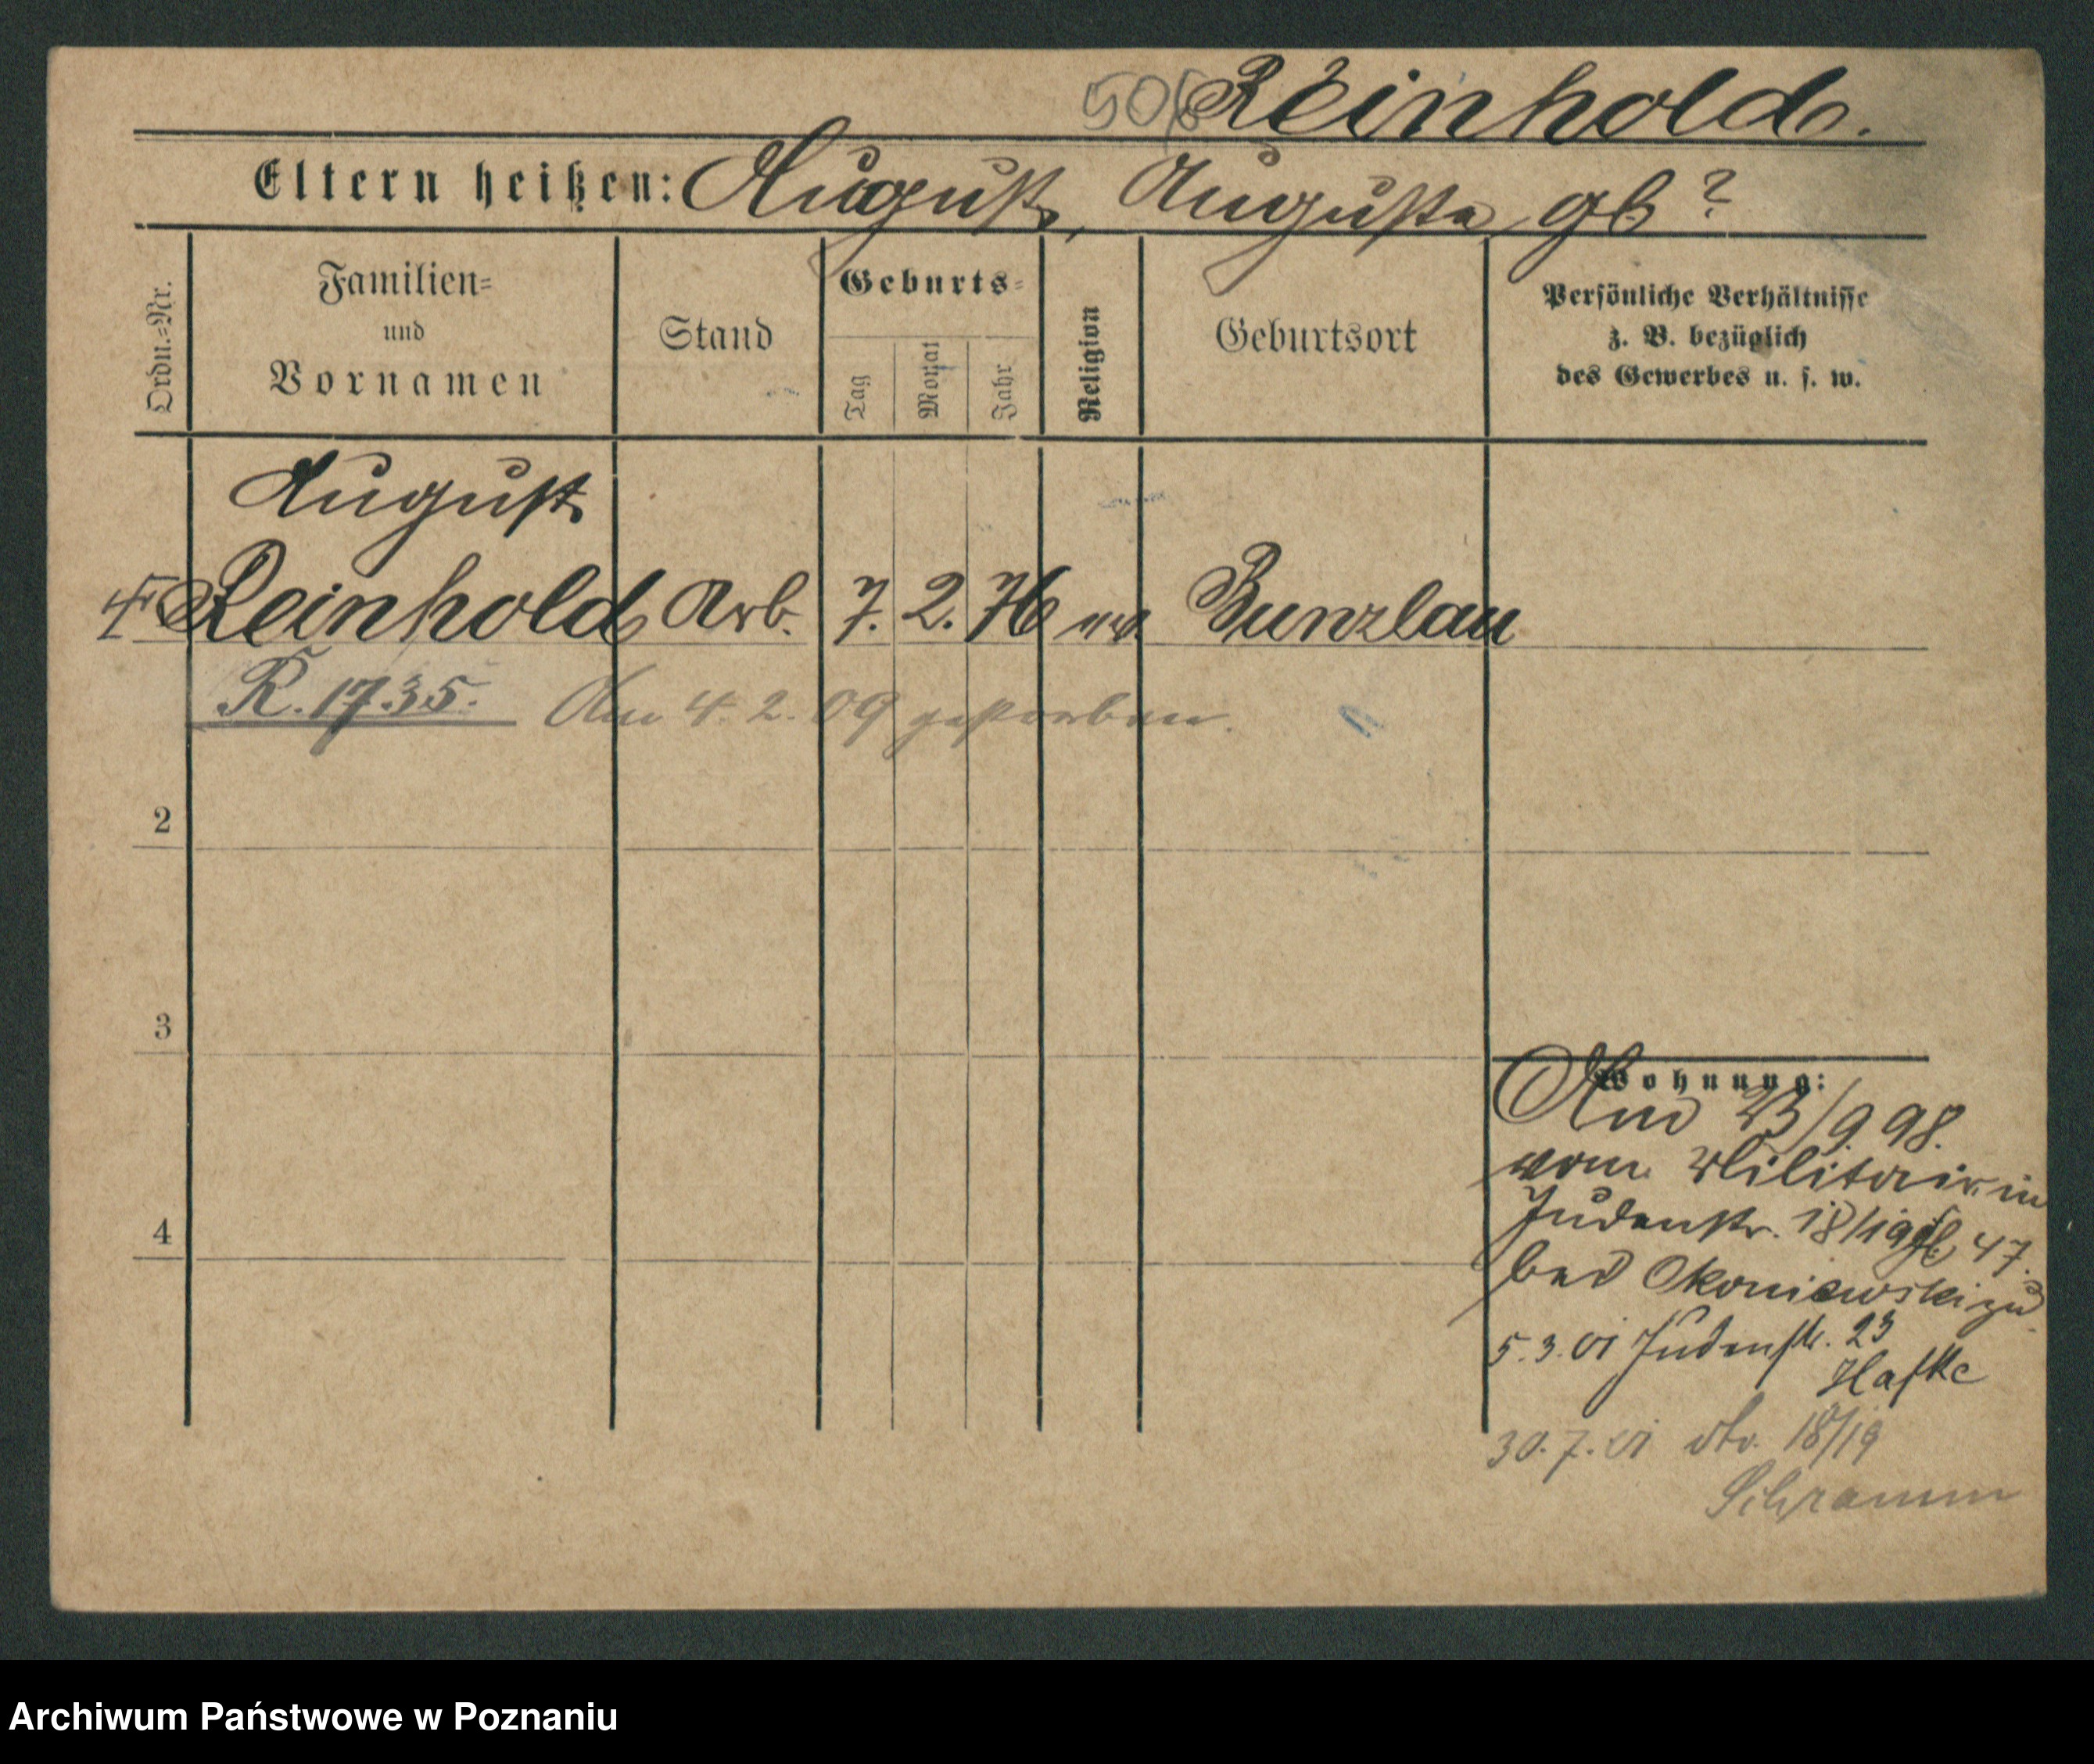 506 Reinhold.
Eltern heißen: August, Auguste gb ?
Ordn.=Nr.
Familien=
und
Vornamen
Stand
Geburts=
Tag
Monat
Jahr
Religion
Geburtsort
Persönliche Verhältnisse
z. B. bezüglich
des Gewerbes u. s. w.
August
Reinhold Arb. 7. 2. 76 ev. Bunzlau
R. 1735. Am 4. 2. 09 gestorben.
2
3
4
Wohnung:
23/9 98.
vom Militair in
Judenstr. 18/19 47.
bei Okoniewski zu
5.3.01 Judenstr. 23
Hafke
30.7.01 dto. 18/19
Schramm
Archiwum Państwowe w Poznaniu